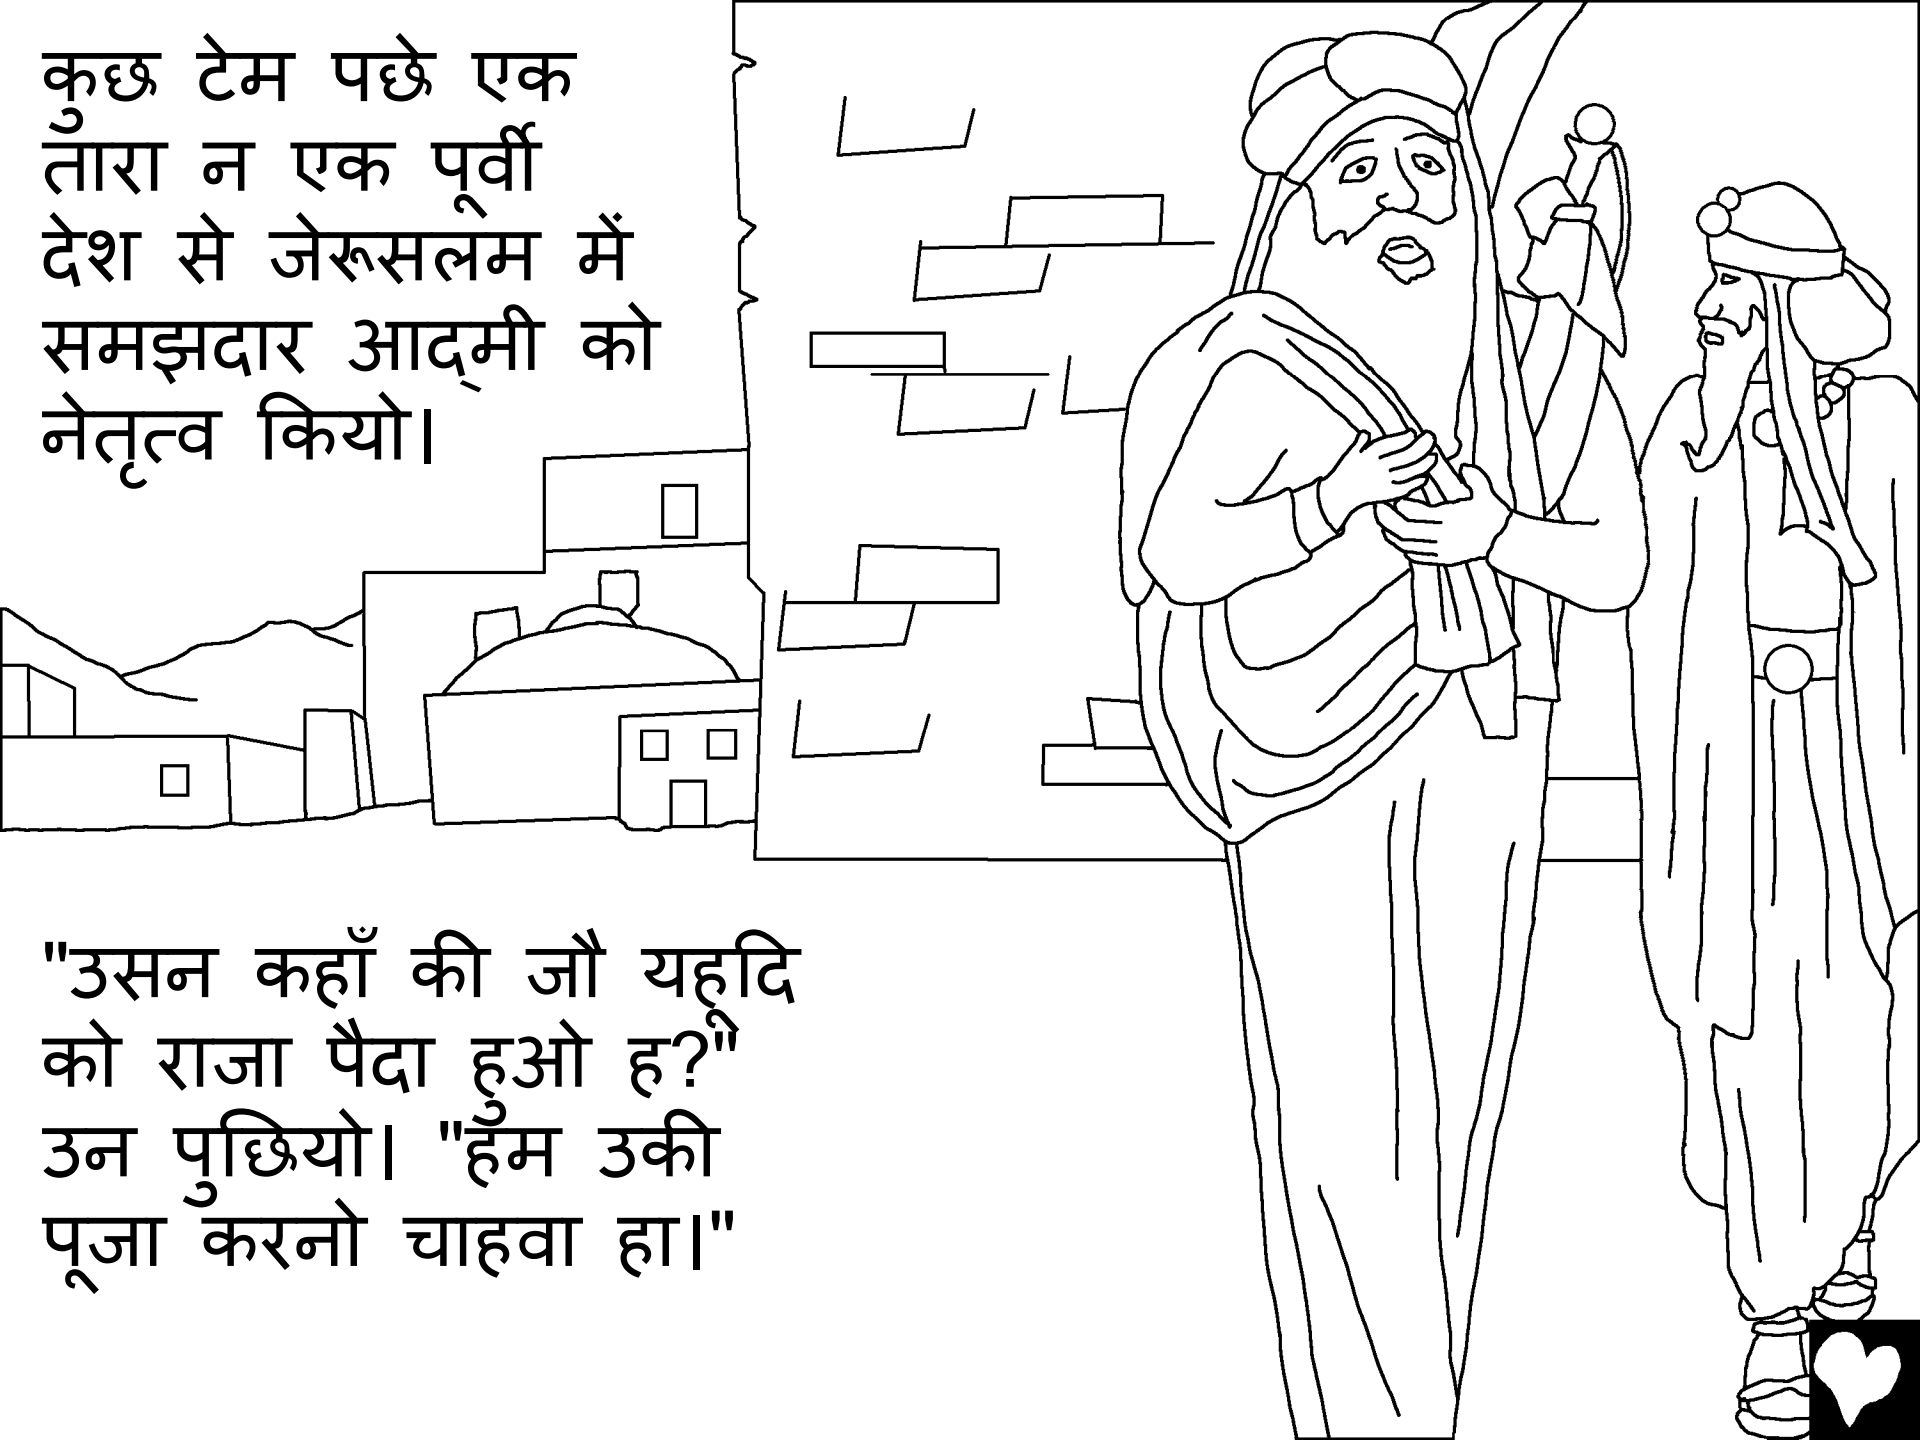 कुछ टेम पछे एक
तारा न एक पूर्वी
देश से जेरूसलम में
समझदार आद्‌मी को
नेतृत्व कियो।
"उसन कहाँ की जौ यहूदि
को राजा पैदा हुओ ह?"
उन पुछियो। "हम उकी
पूजा करनो चाहवा हा।"